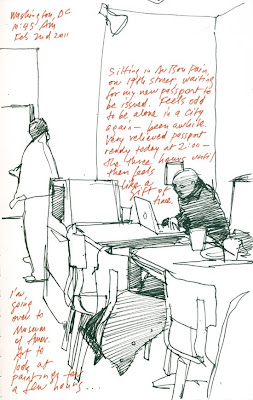 Washington, DC
10:45 Am
Feb 2nd 2011
Sitting in Au Bon Pain,
on 19th street, waiting
for my new passport to
be issued. Feels odd
to be alone in a city
again – been awhile.
Very relieved passport
ready today at 2:00 –
the three hours until
then feels
like a
gift of
time.
I'm
going
over to
Museum
of Amer.
Art to
look at
paintings for
a few hours...